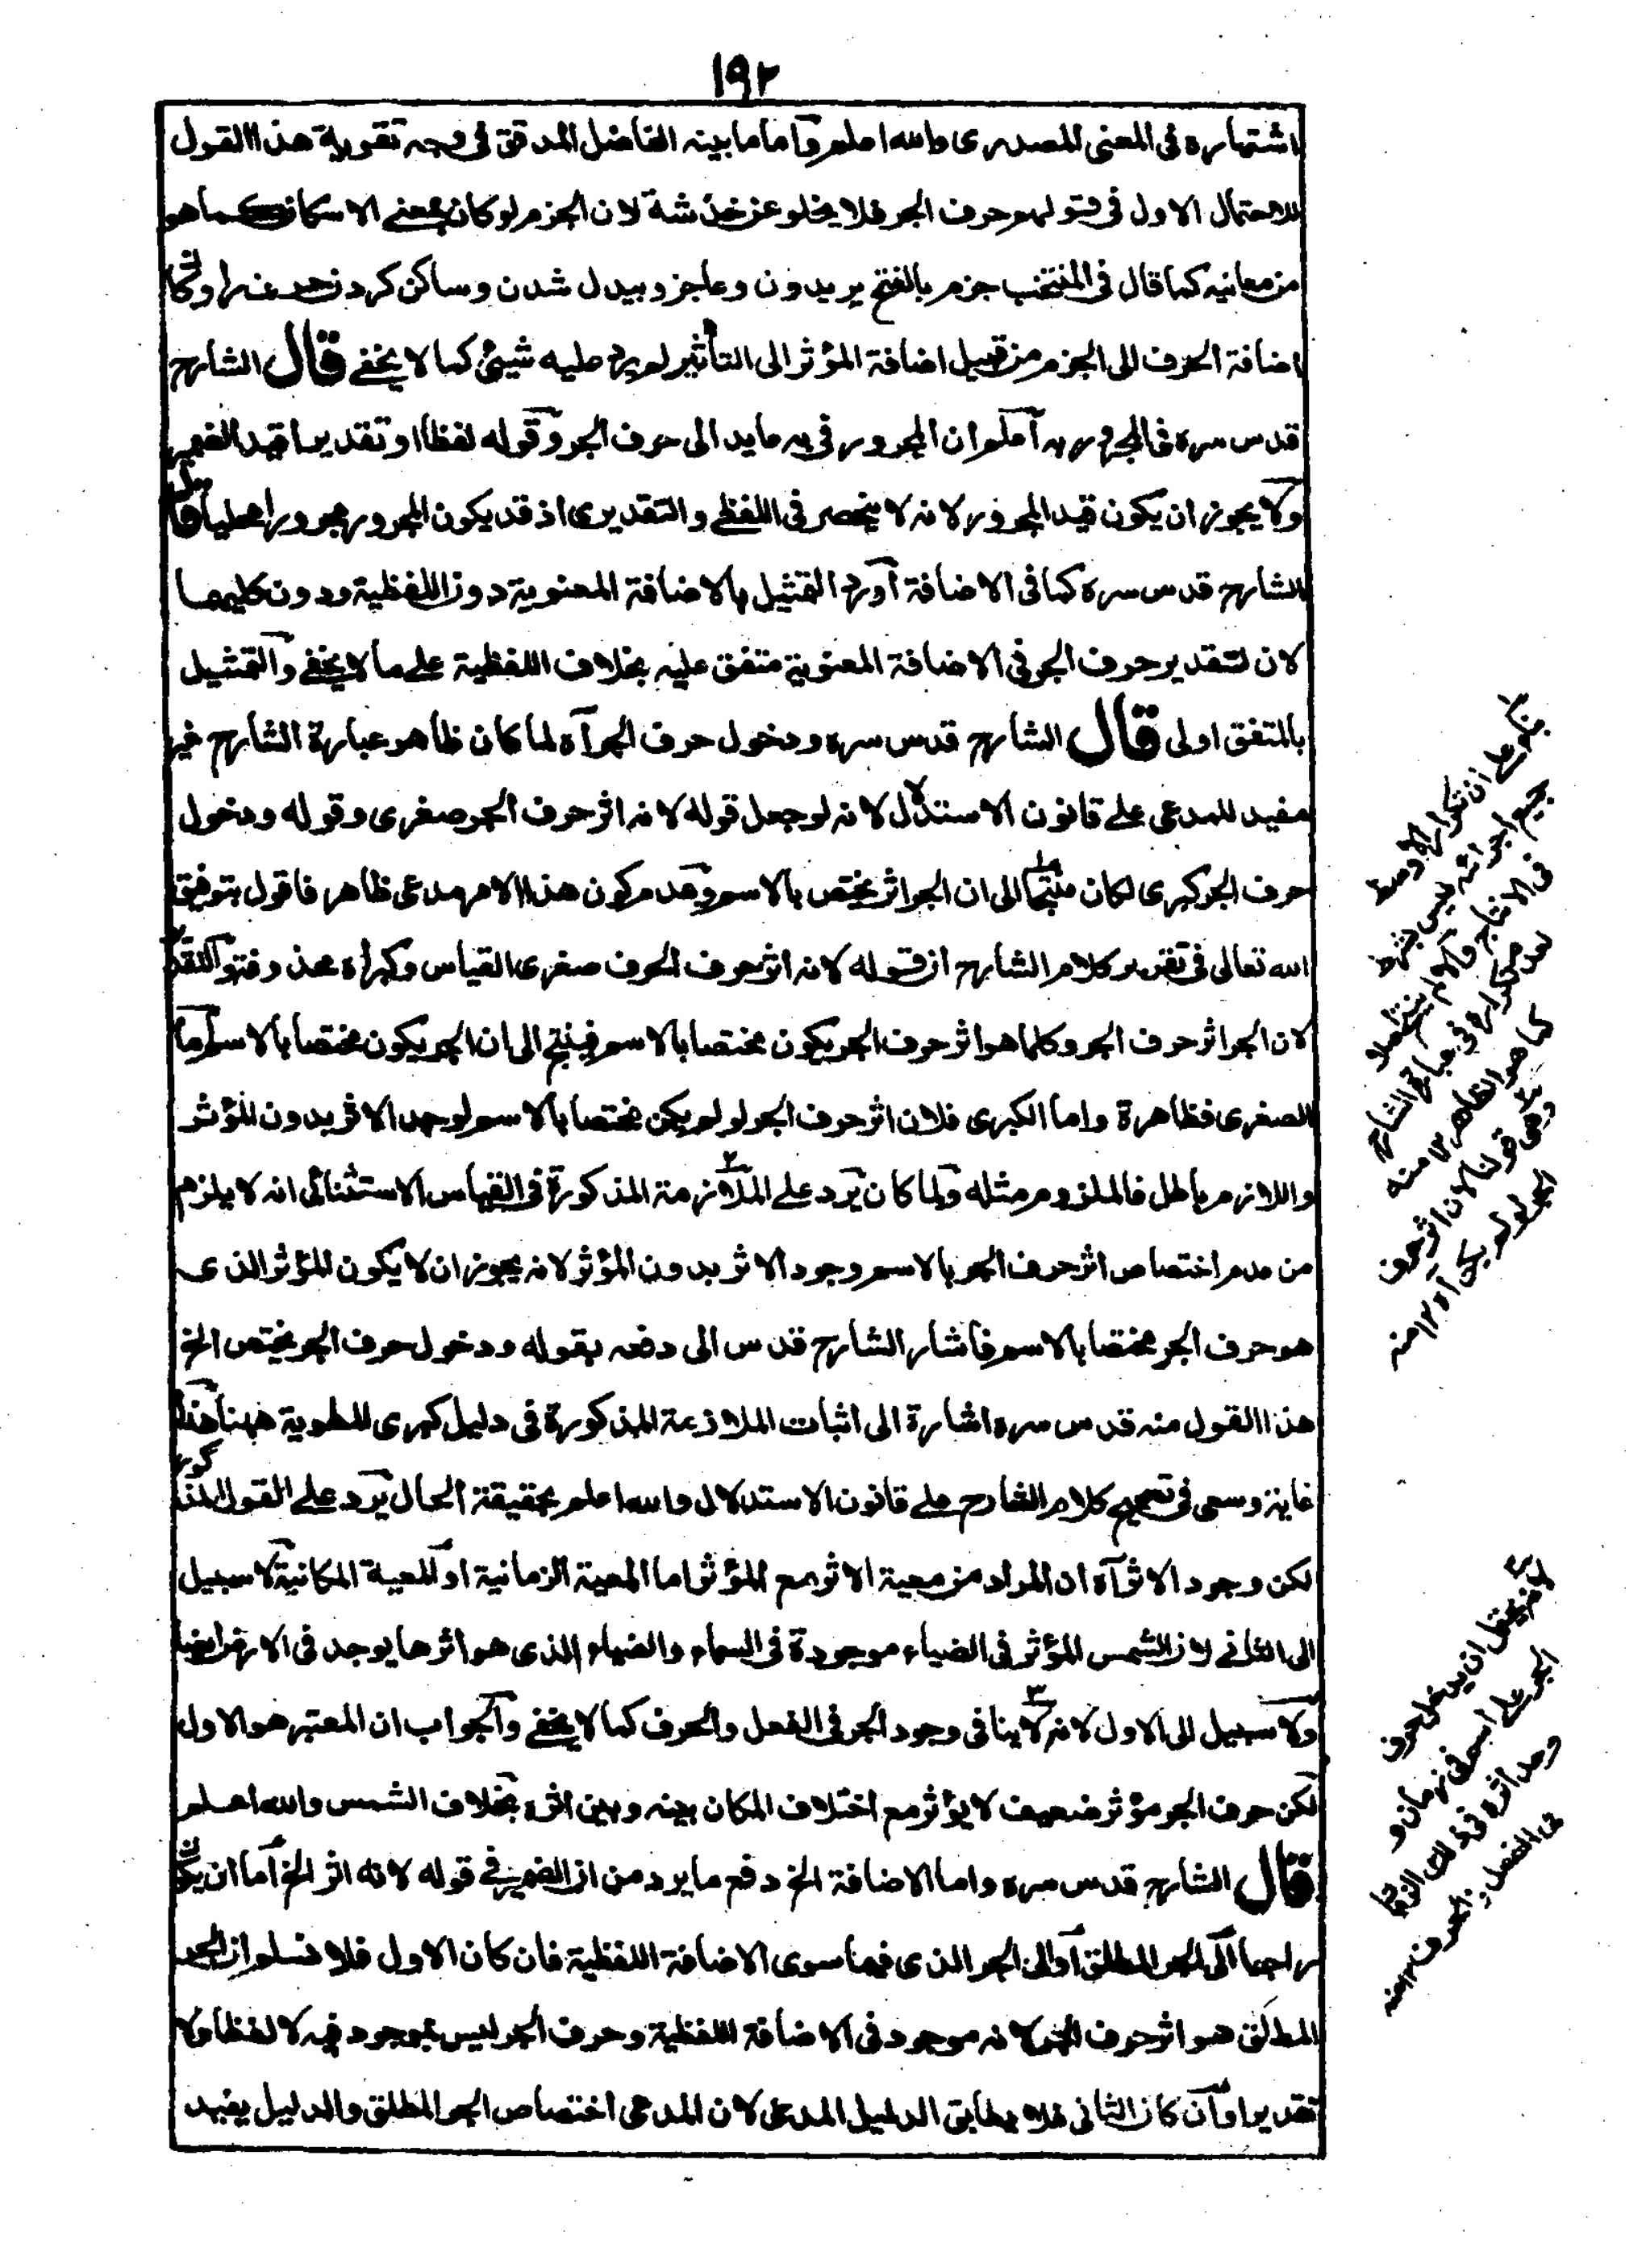 ١٩٢
اشتهاره فى المعنى المصدرى والله اعلم واما ما بينه الفاضل المدقق فى وجه تقوية هذا القول
للاحتمال الاول فى قولهم حرف الجر فلا يخلو عن خدشة لان الجزم لو كان بمعنى الاسكان كما هو
من معانيه كما قال فى المنتخب جزم بالفتح بريدون وعاجز وبيدل شدن وساكن كردن حرف را وكان
اضافة الحرف الى الجزم من قبيل اضافة المؤثر الى التأثير لم يرد عليه شيئ كما لا يخفى قال الشارح
قدس سره فالمجرور به آه اعلم ان المجرور فى به عايد الى حرف الجر وقوله لفظا او تقديرا قيد الضمير
ولا يجوز ان يكون قيد المجرور لانه لا ينحصر فى اللفظى والتقديرى اذ قد يكون المجرور مجرورا محليا قال
الشارح قدس سره كما فى الاضافة آه اورد التمثيل بالاضافة المعنوية دون اللفظية ودون كليهما
لان تقدير حرف الجر فى الاضافة المعنوية متفق عليه بخلاف اللفظية على ما لا يخفى والتمثيل
بالمتفق اولى قال الشارح قدس سره ودخول حرف الجر آه لما كان ظاهر عبارة الشارح غير
مفيد للمدعى على قانون الاستدلال لانه لو جعل قوله لانه اثر حرف الجر صغرى وقوله ودخول
حرف الجر كبرى لكان منتجا الى ان الجر اثر يختص بالاسم وعدم كون هذا الامر مدعى ظاهر فاقول بتوفيق
الله تعالى فى تقرير كلام الشارح ان قوله لانه اثر حرف الحرف صغرى القياس وكبراه محذوفة والتقدير
لان الجر اثر حرف الجر وكلما هو اثر حرف الجر يكون مختصا بالاسم فينتج الى ان الجر يكون مختصا بالاسم اما
الصغرى فظاهرة واما الكبرى فلان اثر حرف الجر لو لم يكن مختصا بالاسم لوجد الاثر بدون المؤثر
واللازم باطل فالملزوم مثله ولما كان يرد على الملازمة المذكورة فى القياس الاستثنائى انه لا يلزم
من عدم اختصاص اثر حرف الجر بالاسم وجود الاثر بدون المؤثر لانه يجوز ان لا يكون المؤثر الذى
هو حرف الجر مختصا بالاسم فاشار الشارح قدس الى دفعه بقوله ودخول حرف الجر يختص الخ
هذا القول منه قدس سره اشارة الى اثبات الملازمة المذكورة فى دليل كبرى المطوية ههنا هذا
غاية وسعى فى تصحيح كلام الشارح على قانون الاستدلال والله اعلم بحقيقة الحال يرد على القول المذكور
لكن وجود الاثر آه ان المراد من معية الاثر مع المؤثر اما المعية الزمانية او المعية المكانية لا سبيل
الى الثانى لان الشمس المؤثر فى الضياء موجودة فى السماء والضياء الذى هو اثرها يوجد فى الارض ايضا
ولا سبيل الى الاول لانه لا ينافى وجود الجر فى الفعل والحرف كما لا يخفى والجواب ان المعتبر هو الاول
لكن حرف الجر مؤثر ضعيف لا يؤثر مع اختلاف المكان بينه وبين اثره بخلاف الشمس والله اعلم
قال الشارح قدس سره واما الاضافة الخ دفع ما يرد من ان الضمير فى قوله لانه اثر الخ اما ان يكون
راجعا الى الجر المطلق او الى الجر الذى فيما سوى الاضافة اللفظية فان كان الاول فلا نسلم ان الجر
المطلق هو اثر حرف الجر لانه موجود فى الاضافة اللفظية وحرف الجر ليس بموجود فيه لا لفظا ولا
تقديرا وان كان الثانى فلا يطابق الدليل المدعى لان المدعى اختصاص الجر المطلق والدليل يفيد
بناء على ان تكرار الاوسط
جميع اجزائه ليس بشرط
فى الانتاج
تكراره فى عبارة الشارح
كما هو الظاهر ١٢ منه
وهى قولنا لان اثر حرف
الجر لو لم يكن آه ١٢ منه
لانه يحتمل ان يدخل حرف
الجر على اسم فى زمان و
وجد اثره فى ذلك الزمان
فى الفعل والحرف ١٢ منه